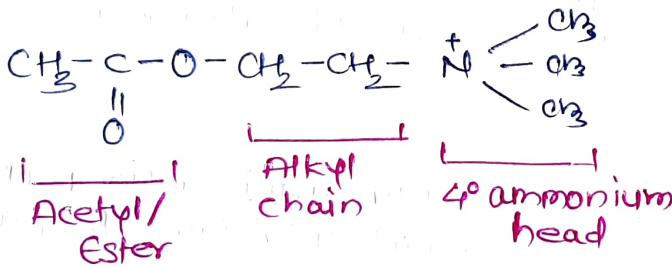 CH3
CH3-C-O-CH2-CH2-N+-CH3
||
O
CH3
Acetyl/
Ester
Alkyl
chain
4° ammonium
head